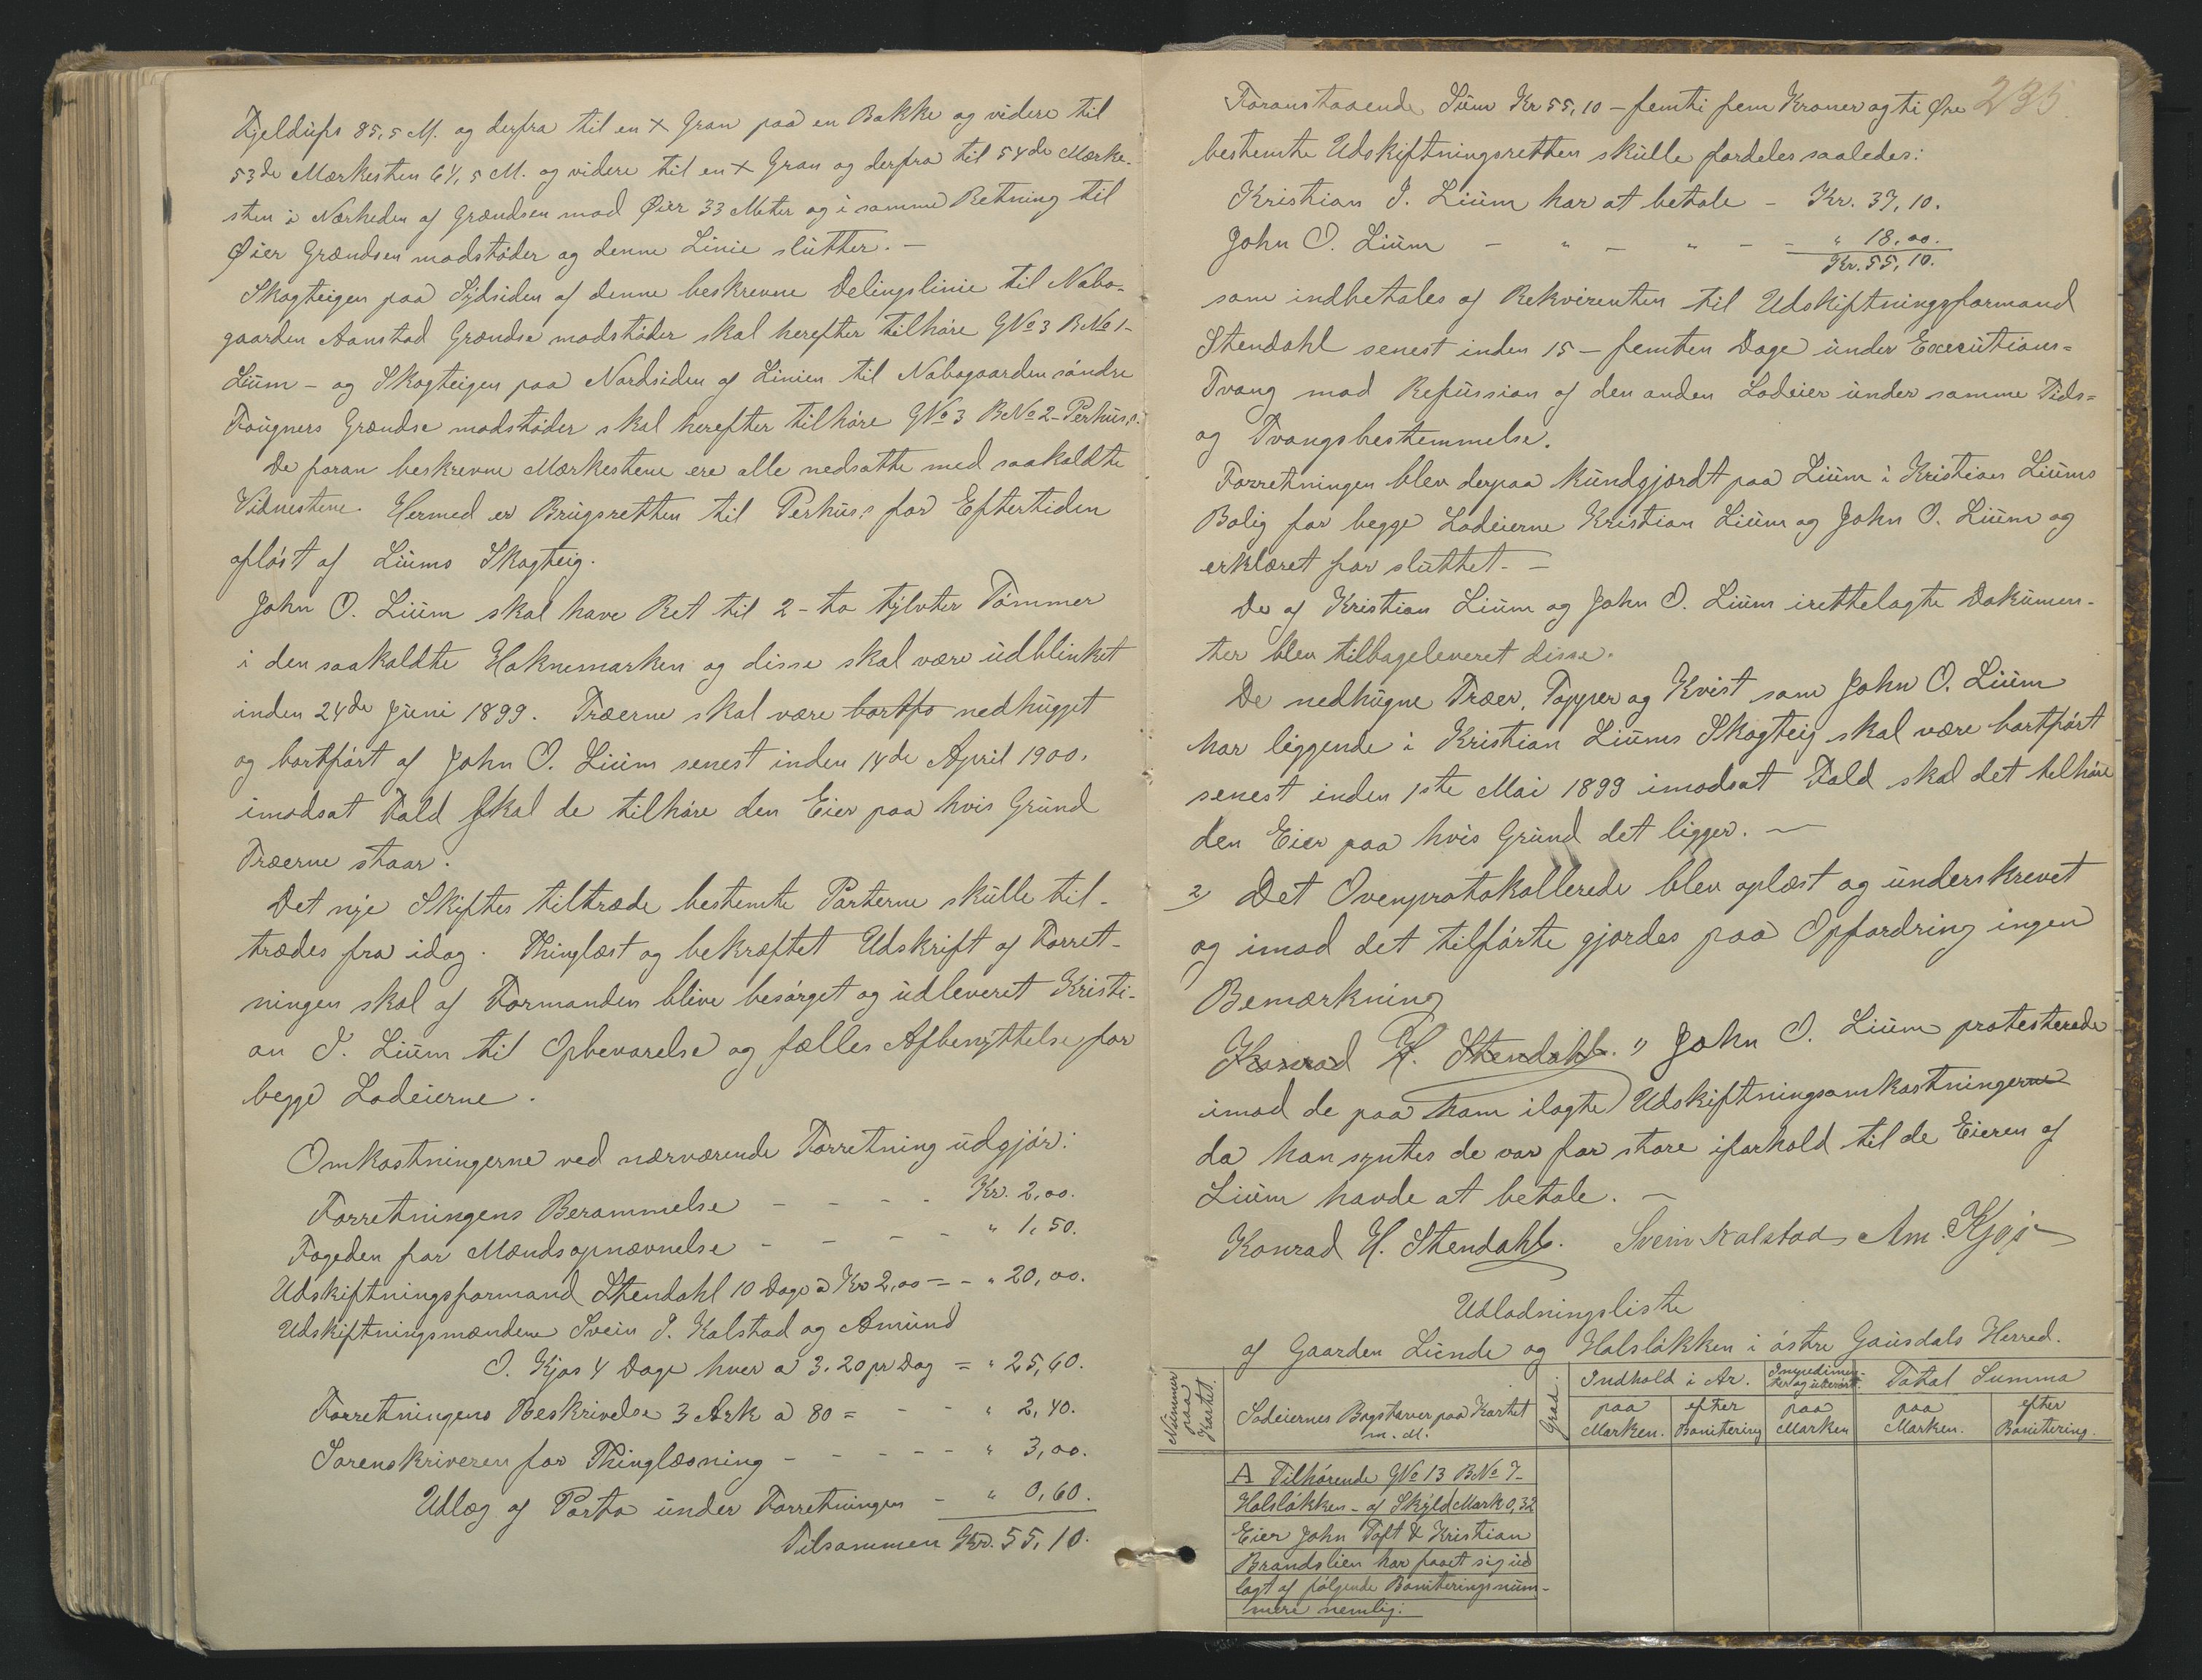 Fjeldufs 85,5 M. og derfra til en × Gran paa en Bakke og videre til
53de Mærkesten 64,5 M. og videre til en × Gran og derfra til 54de Mærke-
sten i Nærheden af Grændsen mod Øier 33 Meter og i samme Retning til
Øier Grændsen modstøder og denne Linie slutter. —
Skogteigen paa Sydsiden af denne beskrevne Delingslinie til Nabo-
gaarden Aanstad Grændse modstøder skal herefter tilhøre GNo 3 BNo 1-
Lium - og Skogteigen paa Nordsiden af Linien til Nabogaarden søndre
Fougners Grændse modstøder skal herefter tilhøre GNo 3 BNo 2 - Perhus.
De foran beskrevne Mærkestene ere alle nedsatte med saakaldte
Vidnestene. Hermed er Brugsretten til Perhus for Eftertiden
afløst af Liums Skogteig.
John O. Lium skal have Ret til 2 - to tylvter Tømmer
i den saakaldte Haknemarken og disse skal være udblinket
inden 24de Juni 1899. Træerne skal være bortfø nedhugget
og bortført af John O. Lium senest inden 14de April 1900.
imodsat Fald skal de tilhøre den Eier paa hvis Grund
Træerne staar.
Det nye Skiftes tiltræde bestemte Parterne skulle til-
trædes fra idag. Thinglæst og bekræftet Udskrift af Forret-
ningen skal af Formanden blive besørget og udleveret Kristi-
an J. Lium til Opbevarelse og fælles Afbenyttelse for
begge Lodeierne.
Omkostningerne ved nærværende Forretning udgjør:
Forretningens Berammelse - - - - Kr. 2,00.
Fogeden for Mændsopnævnelse - - - - " 1,50.
Udskiftningsformand Stendahl 10 Dage à Kr 2,00 = - " 20,00.
Udskiftningsmændene Svein P. Kalstad og Amund
O. Kjos 4 Dage hver a 3.20 pr Dag = " 25,60.
Forretningens Beskrivelse 3 Ark a 80 = - - - " 2,40.
Sorenskriveren for Thinglæsning - - - - - " 3,00.
Udlæg af Porto under Forretningen - " 0,60.
Tilsammen Kr. 55,10.
235
Foranstaaende Sum Kr 55,10 - femti fem Kroner og ti Øre
bestemte Udskiftningsretten skulle fordeles saaledes:
Kristian J. Lium har at betale - Kr. 37,10.
John O. Lium - " - " - - " 18,00.
Kr. 55,10.
som indbetales af Rekvirenten til Udskiftningsformand
Stendahl senest inden 15 - femten Dage under Execütions=
Tvang mod Refussion af den anden Lodeier under samme Tids=
og Tvangsbestemmelse.
Forretningen blev derpaa kundgjordt paa Lium i Kristian Liums
Bolig for begge Lodeierne Kristian Lium og John O. Lium og
erklæret for sluttet. —
De af Kristian Lium og John O. Lium irettelagte Dokumen-
ter blev tilbageleveret disse.
De nedhugne Træer, Topper og Kvist som John O. Lium
har liggende i Kristian Liums Skogteig skal være bortført
senest inden 1ste Mai 1899 imodsat Fald skal det tilhøre
den Eier paa hvis Grund det ligger. —
2/ Det Ovenprotokollerede blev oplæst og underskrevet
og imod det tilførte gjordes paa Opfordring ingen
Bemærkning
Konrad H. Stendahl. " John O. Lium protesterede
imod de paa ham ilagte Udskiftningsomkostningerne
da han syntes de var for store iforhold til de Eieren af
Lium havde at betale. —
Konrad H. Stendahl. Svein Kalstad Am. Kjos
Udlodningsliste
af Gaarden Linde og Halsløkken i østre Gausdals Herred.
Nummer paa Kartet. Lodeiernes Bogstaver paa Kartet m. M. Grad. Indhold i Ar. Total Summa
paa Marken. efter Bonitering paa Marken paa Marken. efter Bonitering.
A Tilhørende GNo 13 BNo 7-
Halsløkken - af Skyld Mark 0,32
Eier John Toft & Kristian
Brandslien har faaet sig ud
lagt af følgende Boniteringsnum-
mere nemlig: